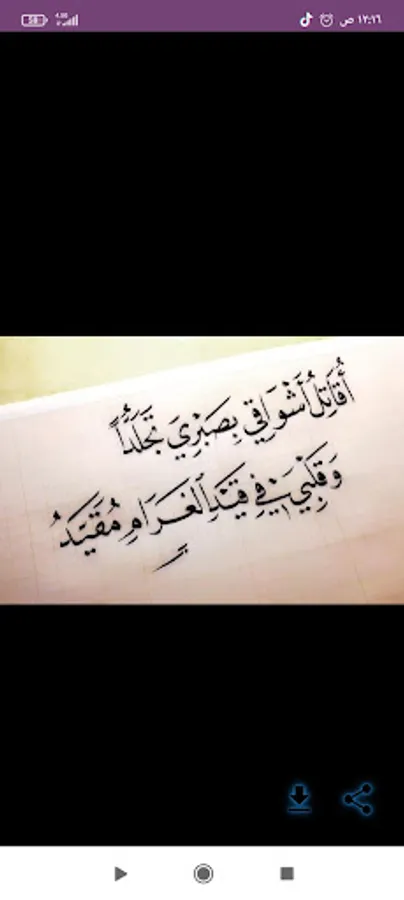 58 4.00 ١٢:١٦ ص
أُقَاتِلُ أَشْوَاقِي بِصَبْرِي تَجَلُّدًا
وَقَلْبِي فِي قَيْدِ الغَرَامِ مُقَيَّدُ